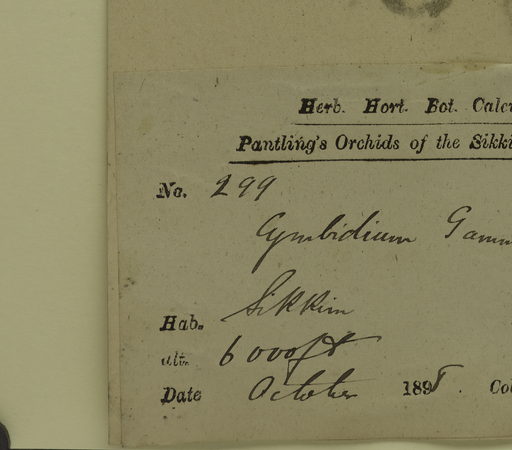 Herb. Hort. Bot. Calc
Pantling's Orchids of the Sikki
No. 299
Cymbidium Gamm
Hab. Sikkim
alt. 6000ft
Date October 1895. Co